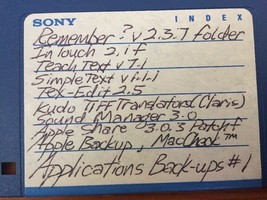 SONY INDEX
Remember? v 2.3.7 folder
In Touch 2.1f
Teach Text v 7.1
SimpleText v 1.1.1
Tex-Edit 2.5
Kudo TIFF Translators (Claris)
Sound Manager 3.0
Apple Share 3.0.3 Patch f
Apple Backup, MacCheck™
Applications Back-ups #1